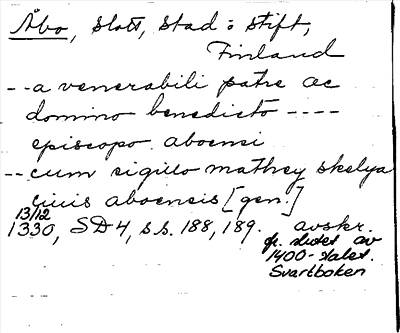 Åbo, slott, stad o stift,
Finland
-- a venerabili patre ac
domino benedicto ----
episcopo aboensi
-- cum sigillo mathey skelya
ciuis aboensis [gen.]
13/12
1330, SD 4, s.s. 188, 189. avskr.
fr. slutet av
1400-talet.
Svartboken